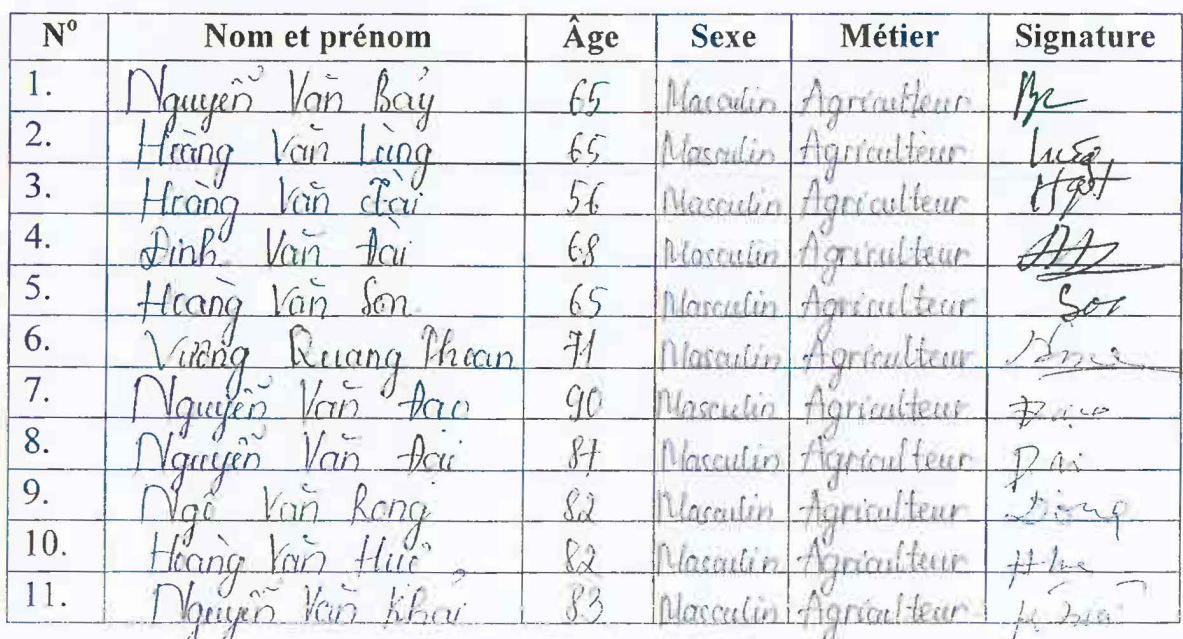 N° Nom et prénom Âge Sexe Métier Signature
1. Nguyễn Văn Bảy 65 Masculin Agriculteur
2. Hoàng Văn Lùng 65 Masculin Agriculteur
3. Hoàng Văn Đài 56 Masculin Agriculteur
4. Đinh Văn Đài 68 Masculin Agriculteur
5. Hoàng Văn Son 65 Masculin Agriculteur Son
6. Vương Quang Phoan 71 Masculin Agriculteur
7. Nguyễn Văn Đạo 90 Masculin Agriculteur
8. Nguyễn Văn Đại 87 Masculin Agriculteur Đai
9. Ngô Văn Rong 82 Masculin Agriculteur
10. Hoàng Văn Huê 82 Masculin Agriculteur
11. Nguyễn Văn Khải 83 Masculin Agriculteur